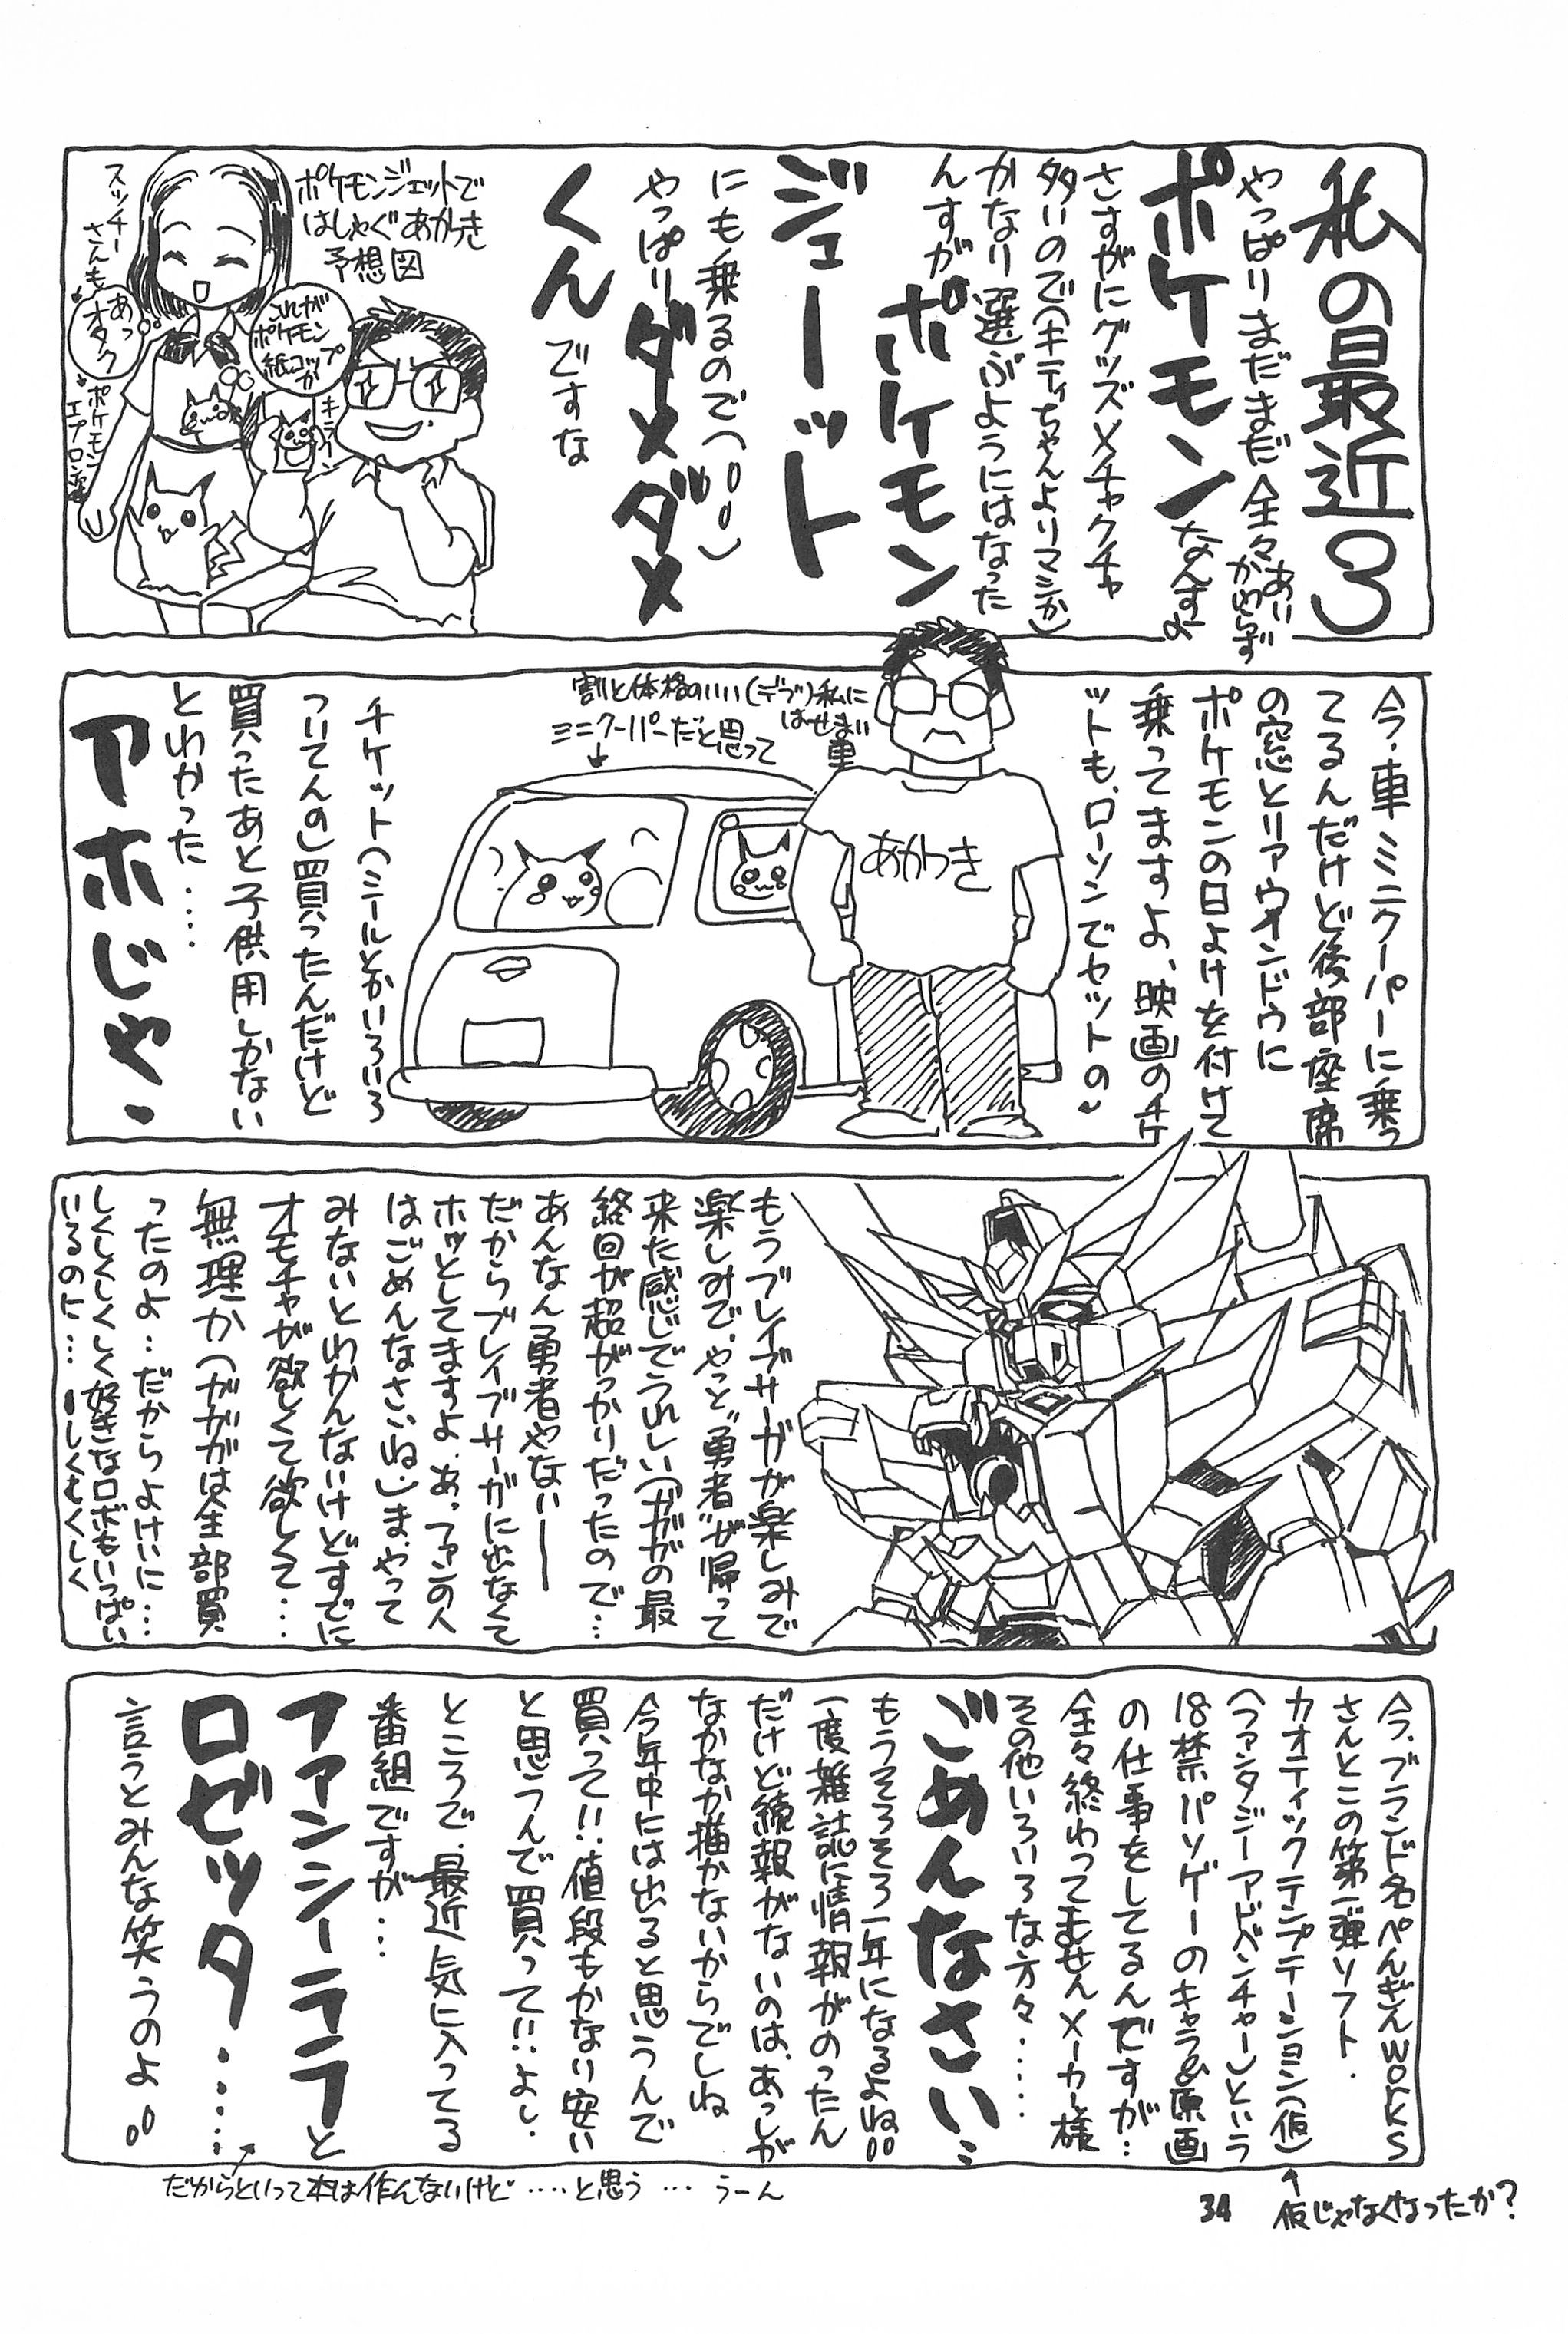 私の最近3
やっぱりまだまだ全々あいかわらず
ポケモンなんすよ
さすがにグッズメチャクチャ
多いので(キティちゃんよりマシか)
かなり選ぶようにはなった
んすがポケモン
ジェーット
にも乗るので(°°)
やっぱりダメダメ
くんですな
ポケモンジェットで
はしゃぐあかつき
予想図
これが
ポケモン
紙コップ
か
キラーン
スッチー
さんも
あっ
オタク
ポケモン
エプロン姿
今、車ミニクーパーに乗っ
てるんだけど後部座席
の窓とリアウインドウに
ポケモンの日よけを付けて
乗ってますよ、映画のチケ
ットも、ローソンでセットの
割と体格のいい(デブ)私に
はせまい
車
ミニクーパーだと思って
あかつき
チケット(シールとかいろいろ
ついてんの)買ったんだけど
買ったあと子供用しかない
とわかった‥‥
アホじゃ、
もうブレイブサーガが楽しみで
楽しみで、やっと〝勇者〟が帰って
来た感じでうれしい(ガガガの最
終回が超がっかりだったので…
あんなん勇者やないー
だからブレイブサーガに出なくて
ホッとしてますよ、あっファンの人
はごめんなさいね)ま、やって
みないとわかんないけどすでに
オモチャが欲しくて欲しくて…
無理か(ガガガは全部買
ったのよ…だからよけいに…
しくしくしくしく好きなロボもいっぱい
いるのに…しくしくしく
今、ブランド名ぺんぎんworks
さんとこの第一弾ソフト、
カオティックテンプテーション(仮)
(ファンタジーアドベンチャー)という
18禁パソゲーのキャラ&原画
の仕事をしてるんですが…
全々終わってませんメーカー様
その他いろいろな方々‥‥
ごめんなさい…
もうそろそろ一年になるよね°°
一度雑誌に情報がのったん
だけど続報がないのは、あっしが
なかなか描かないからでしね
今年中には出ると思うんで
買って!!、値段もかなり安い
と思うんで買って!!、よし、
ところで、最近気に入ってる
番組ですが…
ファンシーララと
ロゼッタ‥‥
言うとみんな笑うのよ°°
だからといって本は作んないけど‥‥と思う…うーん
34
仮じゃなくなったか?